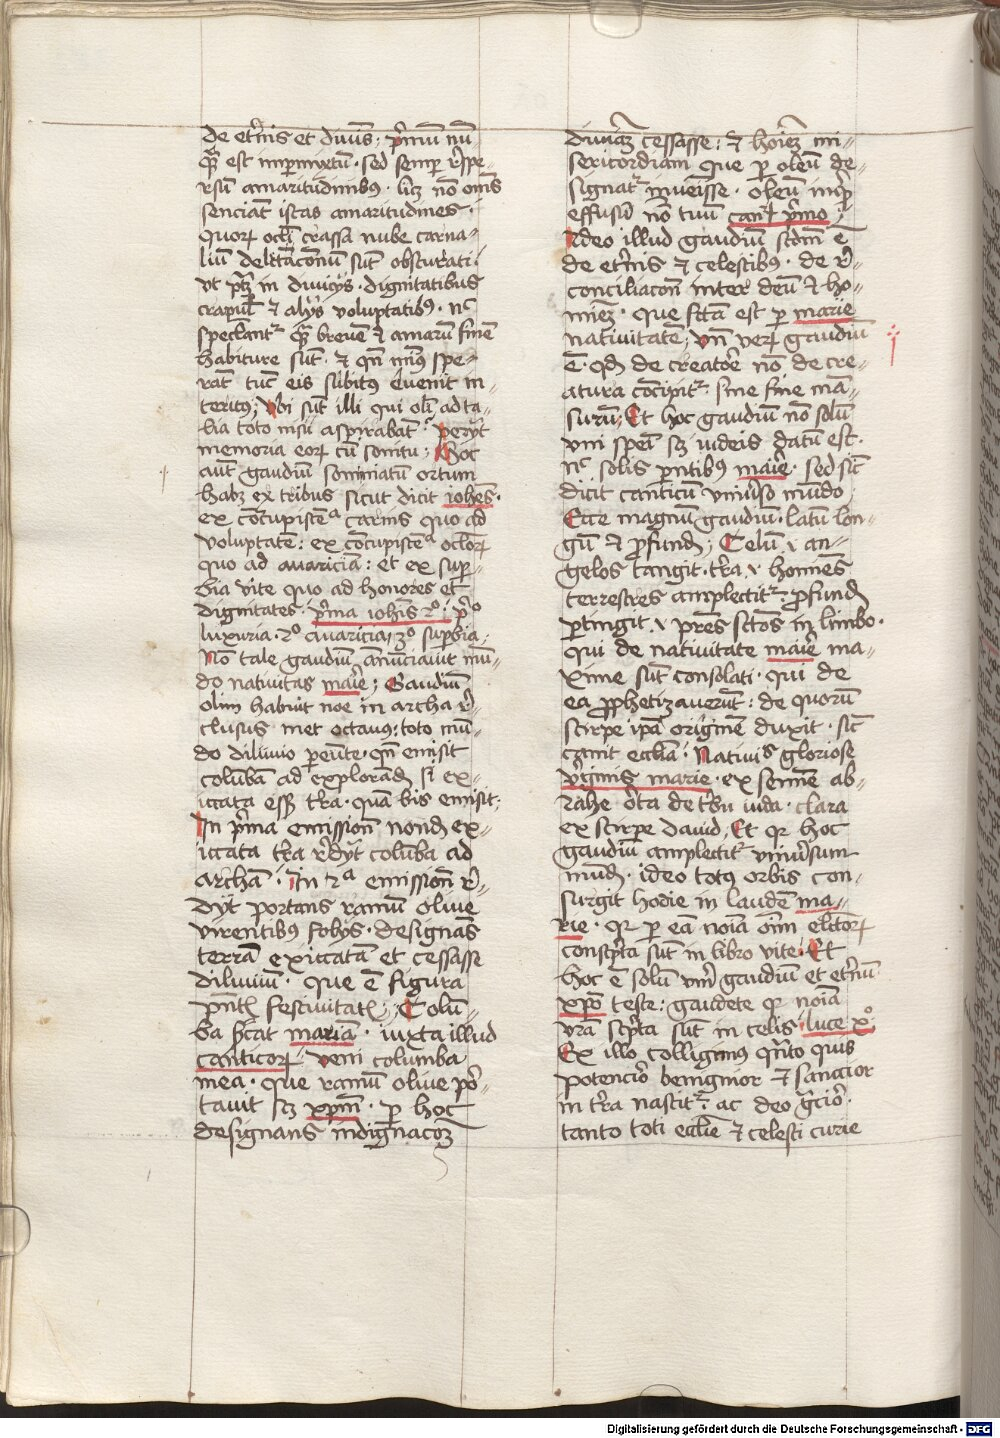 de et'nis et diuīs · p'mū nū-
qȝ est impermixtū · sed semper r'spe-
rsū amaritudinibus · licȝ nō om̄s
senciāt istas amaritudines ·
quorꝝ ocl'i crassa nube carna-
liū delectac̄onū sūt obscurati
vt ptȝ in diuicijs · dignitatibus
crapul' ⁊ alijs voluptatibꝰ · nc̄
spectant' qȝ breuē ⁊ amarū finē
habiture sūt · ⁊ qn̄ minꝰ spe-
rāt tūc eis subitꝰ euenit in-
teritus ; Vbi sūt illi qui oli ad ta-
lia toto nisu aspirabāt · perijt
memoria eorꝝ cū sonitu ; Hoc
aūt gaudiū somniatū ortum
habȝ ex tribus sicut dicit ioh̄es ·
ex cōcupiscēa carnis quo ad
voluptatē : ex cōcupiscēa oclorꝝ
quo ad auariciā : et ex super-
bia vite quo ad honores et
dignitates · p'ma ioh̄is 2º · pº
luxuria · 2º auaricia · 3º supbia ·
Nō tale gaudiū an̄unciauit mū-
do natiuitas mar̄ie ; Gaudiū
olim habuit noe in archa r'-
clusus met octauus toto mū-
do diluuio pereūte · qn̄ emisit
colūbā ad explorand' si ex-
iccata esset t'ra · quā bis emisit ;
In p'ma emission̄ nond' ex-
iccata t'ra r'dijt colūba ad
archā · In 2ª emission̄ r'-
dijt portans ramū oliue
virentibꝰ folijs · designās
terrā exiccatā et cessasse
diluuiū · que ē figura
pn̄tis festiuitatis ; Colū-
ba sig'cat mariā · iuxta illud
canticorꝝ · veni columba
mea · que ramū oliue por-
tauit sȝ xpm̄ · p hoc
designans indignac̄oȝ
diuinā cessasse : ⁊ hoīeȝ mi-
sericordiam que p oleū de-
signat' inuenisse · oleū inq'
effusū nō tuū cant' p'mo ;
Ideo illud gaudiū scdm̄ ē
de et'nis ⁊ celestibus · de r'-
conciliac̄on̄ inter deū ⁊ ho-
mīeȝ · que fctā est p marie
natiuitatē ; Vn̄ verꝝ gaudiū
ē · qd' de creatore nō de cre-
atura cōcipit' · sine fine mā-
surū ; Et hoc gaudiū nō solū
vni spēi sȝ iudeis datū est ·
nc̄ solis pentibꝰ mar̄ie · sed sic̄
dicit canticū vniuerso mūdo
Ecce magnū gaudiū · latū lon-
gū ⁊ profund' ; Celū v an-
gelos tangit · t'ra v homines
terrestres amplectit' · profund'
ptingit v pres sctōs in limbo ·
qui de natiuitate mar̄ie ma-
xime sūt consolati · qui de
ea prophetizauerūt : de quorū
stirpe ipā originē duxit · sic̄
canit ecclīa · Natiuis gloriose
v'ginis marie · ex semine ab-
rahe orta de t'bu iuda · clara
ex stirpe dauid ; Et qr hoc
gaudiū amplectit' vniuersum
mūd' · ideo totꝰ orbis con-
surgit hodie in laudē ma-
rie · qr p eā noīa oīm electorꝝ
conscripta sūt in libro vite · Et
hoc ē solū verū gaudiū et et'nū
xpo teste · gaudete qr noīa
vrā scp'ta sūt in celis · luce xº
Ex illo colligimus q'nto quis
potencior benignior ⁊ sanctior
in t'ra nascit' · ac deo g'cior ·
tanto toti ecclīe ⁊ celesti curie
Digitalisierung gefördert durch die Deutsche Forschungsgemeinschaft - DFG